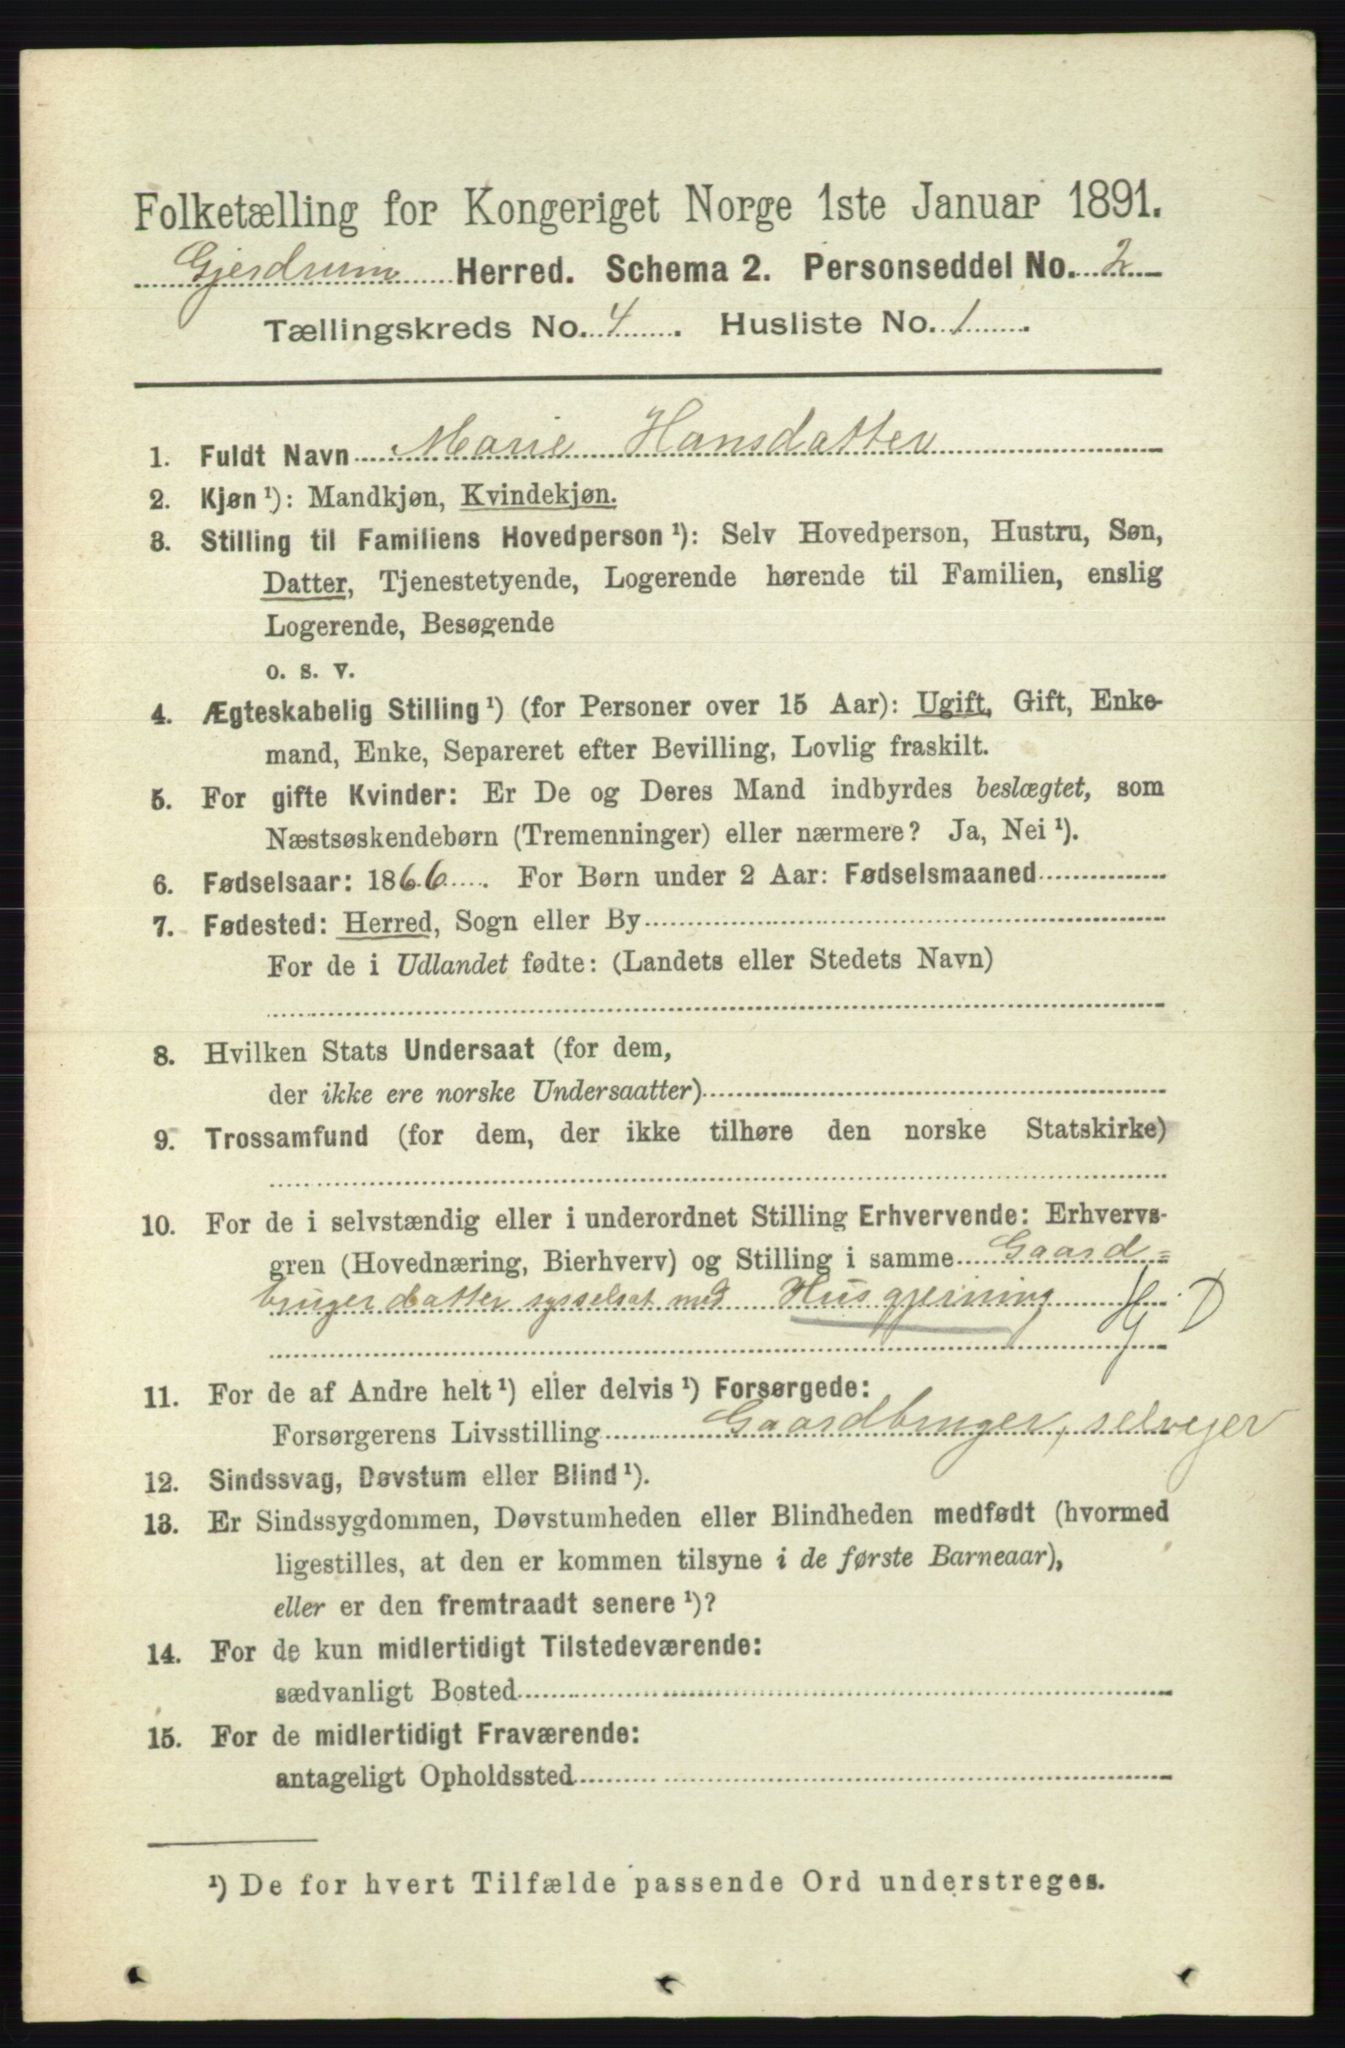 Folketælling for Kongeriget Norge 1ste Januar 1891.
Gjerdrum Herred. Schema 2. Personseddel No. 2
Tællingskreds No. 4. Husliste No. 1.
1. Fuldt Navn Marie Hansdatter
2. Kjøn ¹): Mandkjøn, Kvindekjøn.
3. Stilling til Familiens Hovedperson ¹): Selv Hovedperson, Hustru, Søn,
Datter, Tjenestetyende, Logerende hørende til Familien, enslig
Logerende, Besøgende
o. s. v.
4. Ægteskabelig Stilling ¹) (for Personer over 15 Aar): Ugift, Gift, Enke-
mand, Enke, Separeret efter Bevilling, Lovlig fraskilt.
5. For gifte Kvinder: Er De og Deres Mand indbyrdes beslægtet, som
Næstsøskendebørn (Tremenninger) eller nærmere? Ja, Nei ¹).
6. Fødselsaar: 1866. For Børn under 2 Aar: Fødselsmaaned
7. Fødested: Herred, Sogn eller By
For de i Udlandet fødte: (Landets eller Stedets Navn)
8. Hvilken Stats Undersaat (for dem,
der ikke ere norske Undersaatter)
9. Trossamfund (for dem, der ikke tilhøre den norske Statskirke)
10. For de i selvstændig eller i underordnet Stilling Erhvervende: Erhvervs-
gren (Hovednæring, Bierhverv) og Stilling i samme Gaard=
bruger datter sysselsat med Husgjerning Hj. D
11. For de af Andre helt ¹) eller delvis ¹) Forsørgede:
Forsørgerens Livsstilling Gaardbruger, selvejer
12. Sindssvag, Døvstum eller Blind ¹).
13. Er Sindssygdommen, Døvstumheden eller Blindheden medfødt (hvormed
ligestilles, at den er kommen tilsyne i de første Barneaar),
eller er den fremtraadt senere ¹)?
14. For de kun midlertidigt Tilstedeværende:
sædvanligt Bosted
15. For de midlertidigt Fraværende:
antageligt Opholdssted
¹) De for hvert Tilfælde passende Ord understreges.